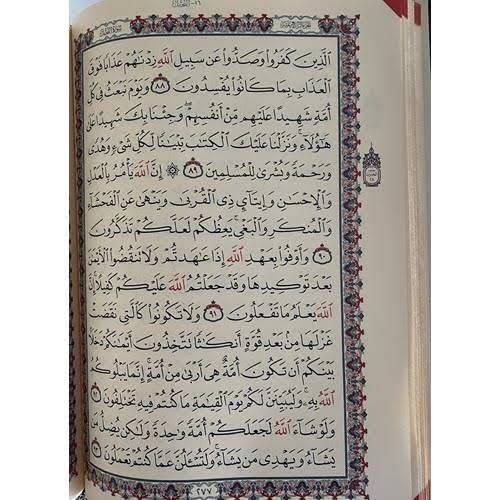 ٱلَّذِينَ كَفَرُوا۟ وَصَدُّوا۟ عَن سَبِيلِ ٱللَّهِ زِدْنَٰهُمْ عَذَابًا فَوْقَ
ٱلْعَذَابِ بِمَا كَانُوا۟ يُفْسِدُونَ ٨٨ وَيَوْمَ نَبْعَثُ فِى كُلِّ
أُمَّةٍ شَهِيدًا عَلَيْهِم مِّنْ أَنفُسِهِمْ ۖ وَجِئْنَا بِكَ شَهِيدًا عَلَىٰ
هَٰٓؤُلَآءِ ۚ وَنَزَّلْنَا عَلَيْكَ ٱلْكِتَٰبَ تِبْيَٰنًا لِّكُلِّ شَىْءٍ وَهُدًى
وَرَحْمَةً وَبُشْرَىٰ لِلْمُسْلِمِينَ ٨٩ ۞ إِنَّ ٱللَّهَ يَأْمُرُ بِٱلْعَدْلِ
وَٱلْإِحْسَٰنِ وَإِيتَآئِ ذِى ٱلْقُرْبَىٰ وَيَنْهَىٰ عَنِ ٱلْفَحْشَآءِ
وَٱلْمُنكَرِ وَٱلْبَغْىِ ۚ يَعِظُكُمْ لَعَلَّكُمْ تَذَكَّرُونَ
٩٠ وَأَوْفُوا۟ بِعَهْدِ ٱللَّهِ إِذَا عَٰهَدتُّمْ وَلَا تَنقُضُوا۟ ٱلْأَيْمَٰنَ
بَعْدَ تَوْكِيدِهَا وَقَدْ جَعَلْتُمُ ٱللَّهَ عَلَيْكُمْ كَفِيلًا ۚ إِنَّ
ٱللَّهَ يَعْلَمُ مَا تَفْعَلُونَ ٩١ وَلَا تَكُونُوا۟ كَٱلَّتِى نَقَضَتْ
غَزْلَهَا مِنۢ بَعْدِ قُوَّةٍ أَنكَٰثًا تَتَّخِذُونَ أَيْمَٰنَكُمْ دَخَلًۢا
بَيْنَكُمْ أَن تَكُونَ أُمَّةٌ هِىَ أَرْبَىٰ مِنْ أُمَّةٍ ۚ إِنَّمَا يَبْلُوكُمُ
ٱللَّهُ بِهِۦ ۚ وَلَيُبَيِّنَنَّ لَكُمْ يَوْمَ ٱلْقِيَٰمَةِ مَا كُنتُمْ فِيهِ تَخْتَلِفُونَ ٩٢
وَلَوْ شَآءَ ٱللَّهُ لَجَعَلَكُمْ أُمَّةً وَٰحِدَةً وَلَٰكِن يُضِلُّ مَن
يَشَآءُ وَيَهْدِى مَن يَشَآءُ ۚ وَلَتُسْـَٔلُنَّ عَمَّا كُنتُمْ تَعْمَلُونَ ٩٣
٢٧٧